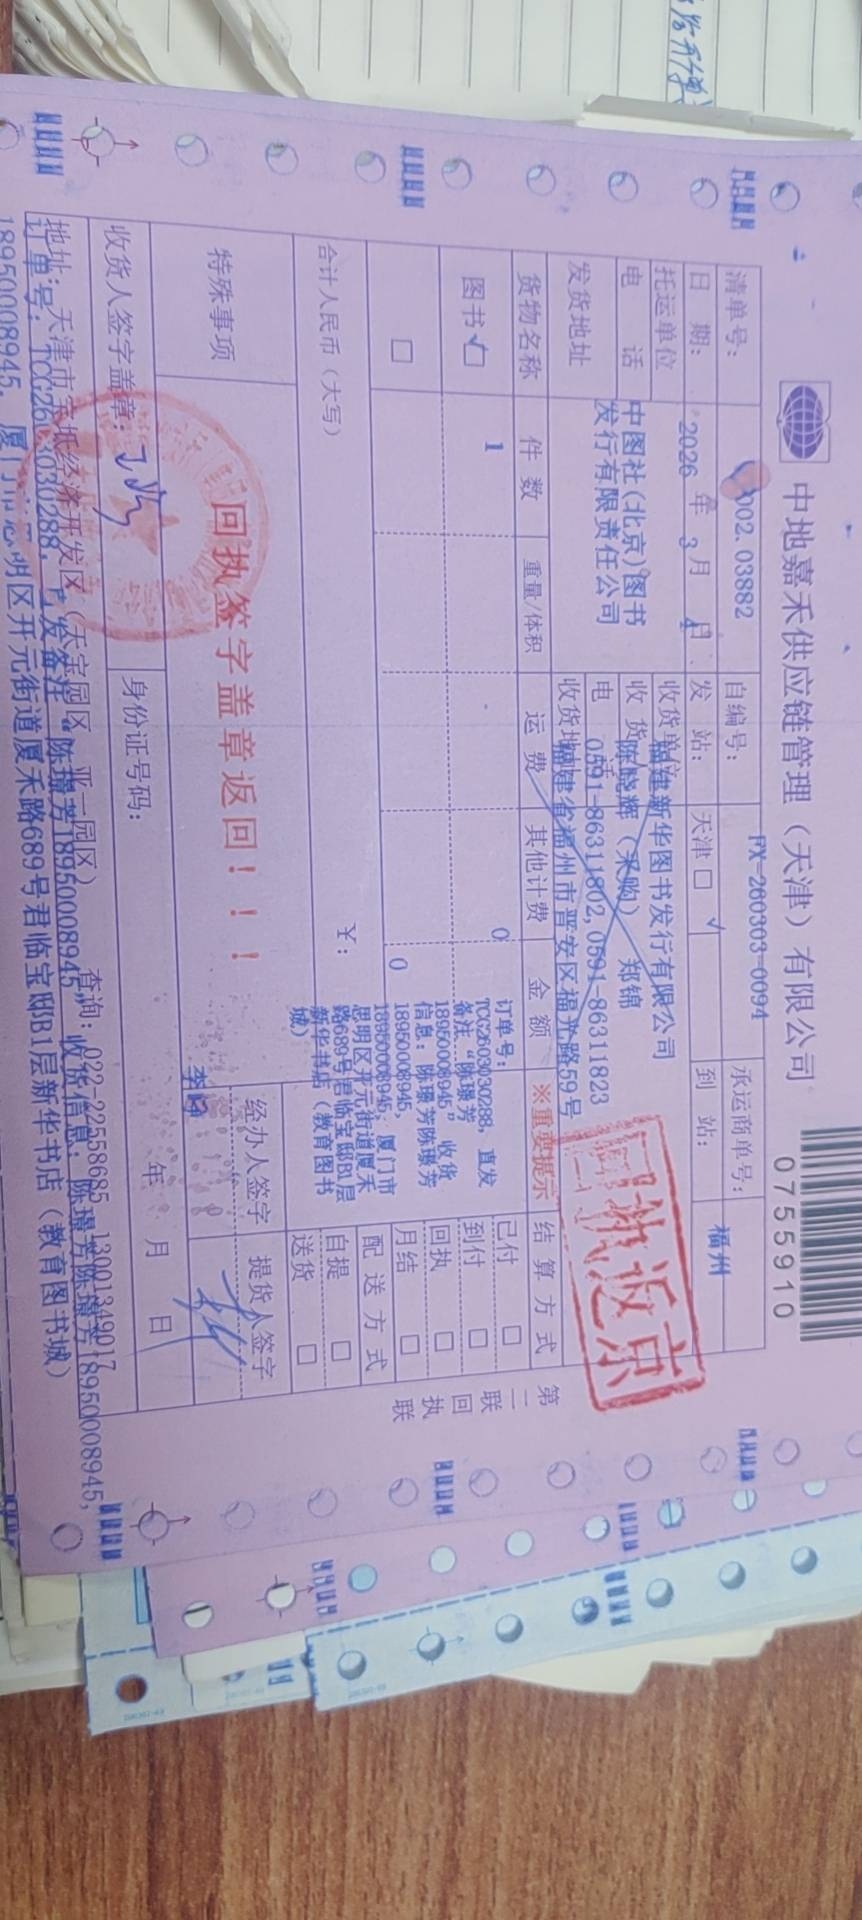 中地嘉禾供应链管理（天津）有限公司
0755910
清单号：
002.03882
自编号：
PX-260303-0094
承运商单号：
日 期：
2026 年 3 月 日
发 站：
天津 □ √
到 站：
福州
托运单位
中图社(北京)图书
发行有限责任公司
收货单位
福建新华图书发行有限公司
电 话
收 货
陈晓辉（采购） 郑锦
电 话
0591-86311802,0591-86311823
发货地址
收货地址
福建省福州市晋安区福光路59号
回执返京
货物名称
件 数
重量/体积
运 费
其他计费
金 额
※重要提示
结 算 方 式
图书 √□
1
0
订单号：
TCG2603030288，直发
备注“陈璟芳
18950008945” 收货
信息：陈璟芳陈璟芳
18950008945,
18950008945，厦门市
思明区开元街道厦禾
路689号君临宝邸B1层
新华书店（教育图书
城）
已付 □
到付 □
回执 □
月结 □
□
0
配 送 方 式
自提 □
送货 □
合计人民币（大写）
￥：
特殊事项
回执签字盖章返回！！！
经办人签字
提货人签字
收货人签字盖章：
身份证号码：
年 月 日
第二联 回执联
地址：天津市宝坻经济开发区（天宝园区 亚一园区）
查询：022-22558685 13001349017
订单号：TCG2603030288，直发备注“陈璟芳18950008945” 收货信息：陈璟芳陈璟芳18950008945,
18950008945，厦门市思明区开元街道厦禾路689号君临宝邸B1层新华书店（教育图书城）